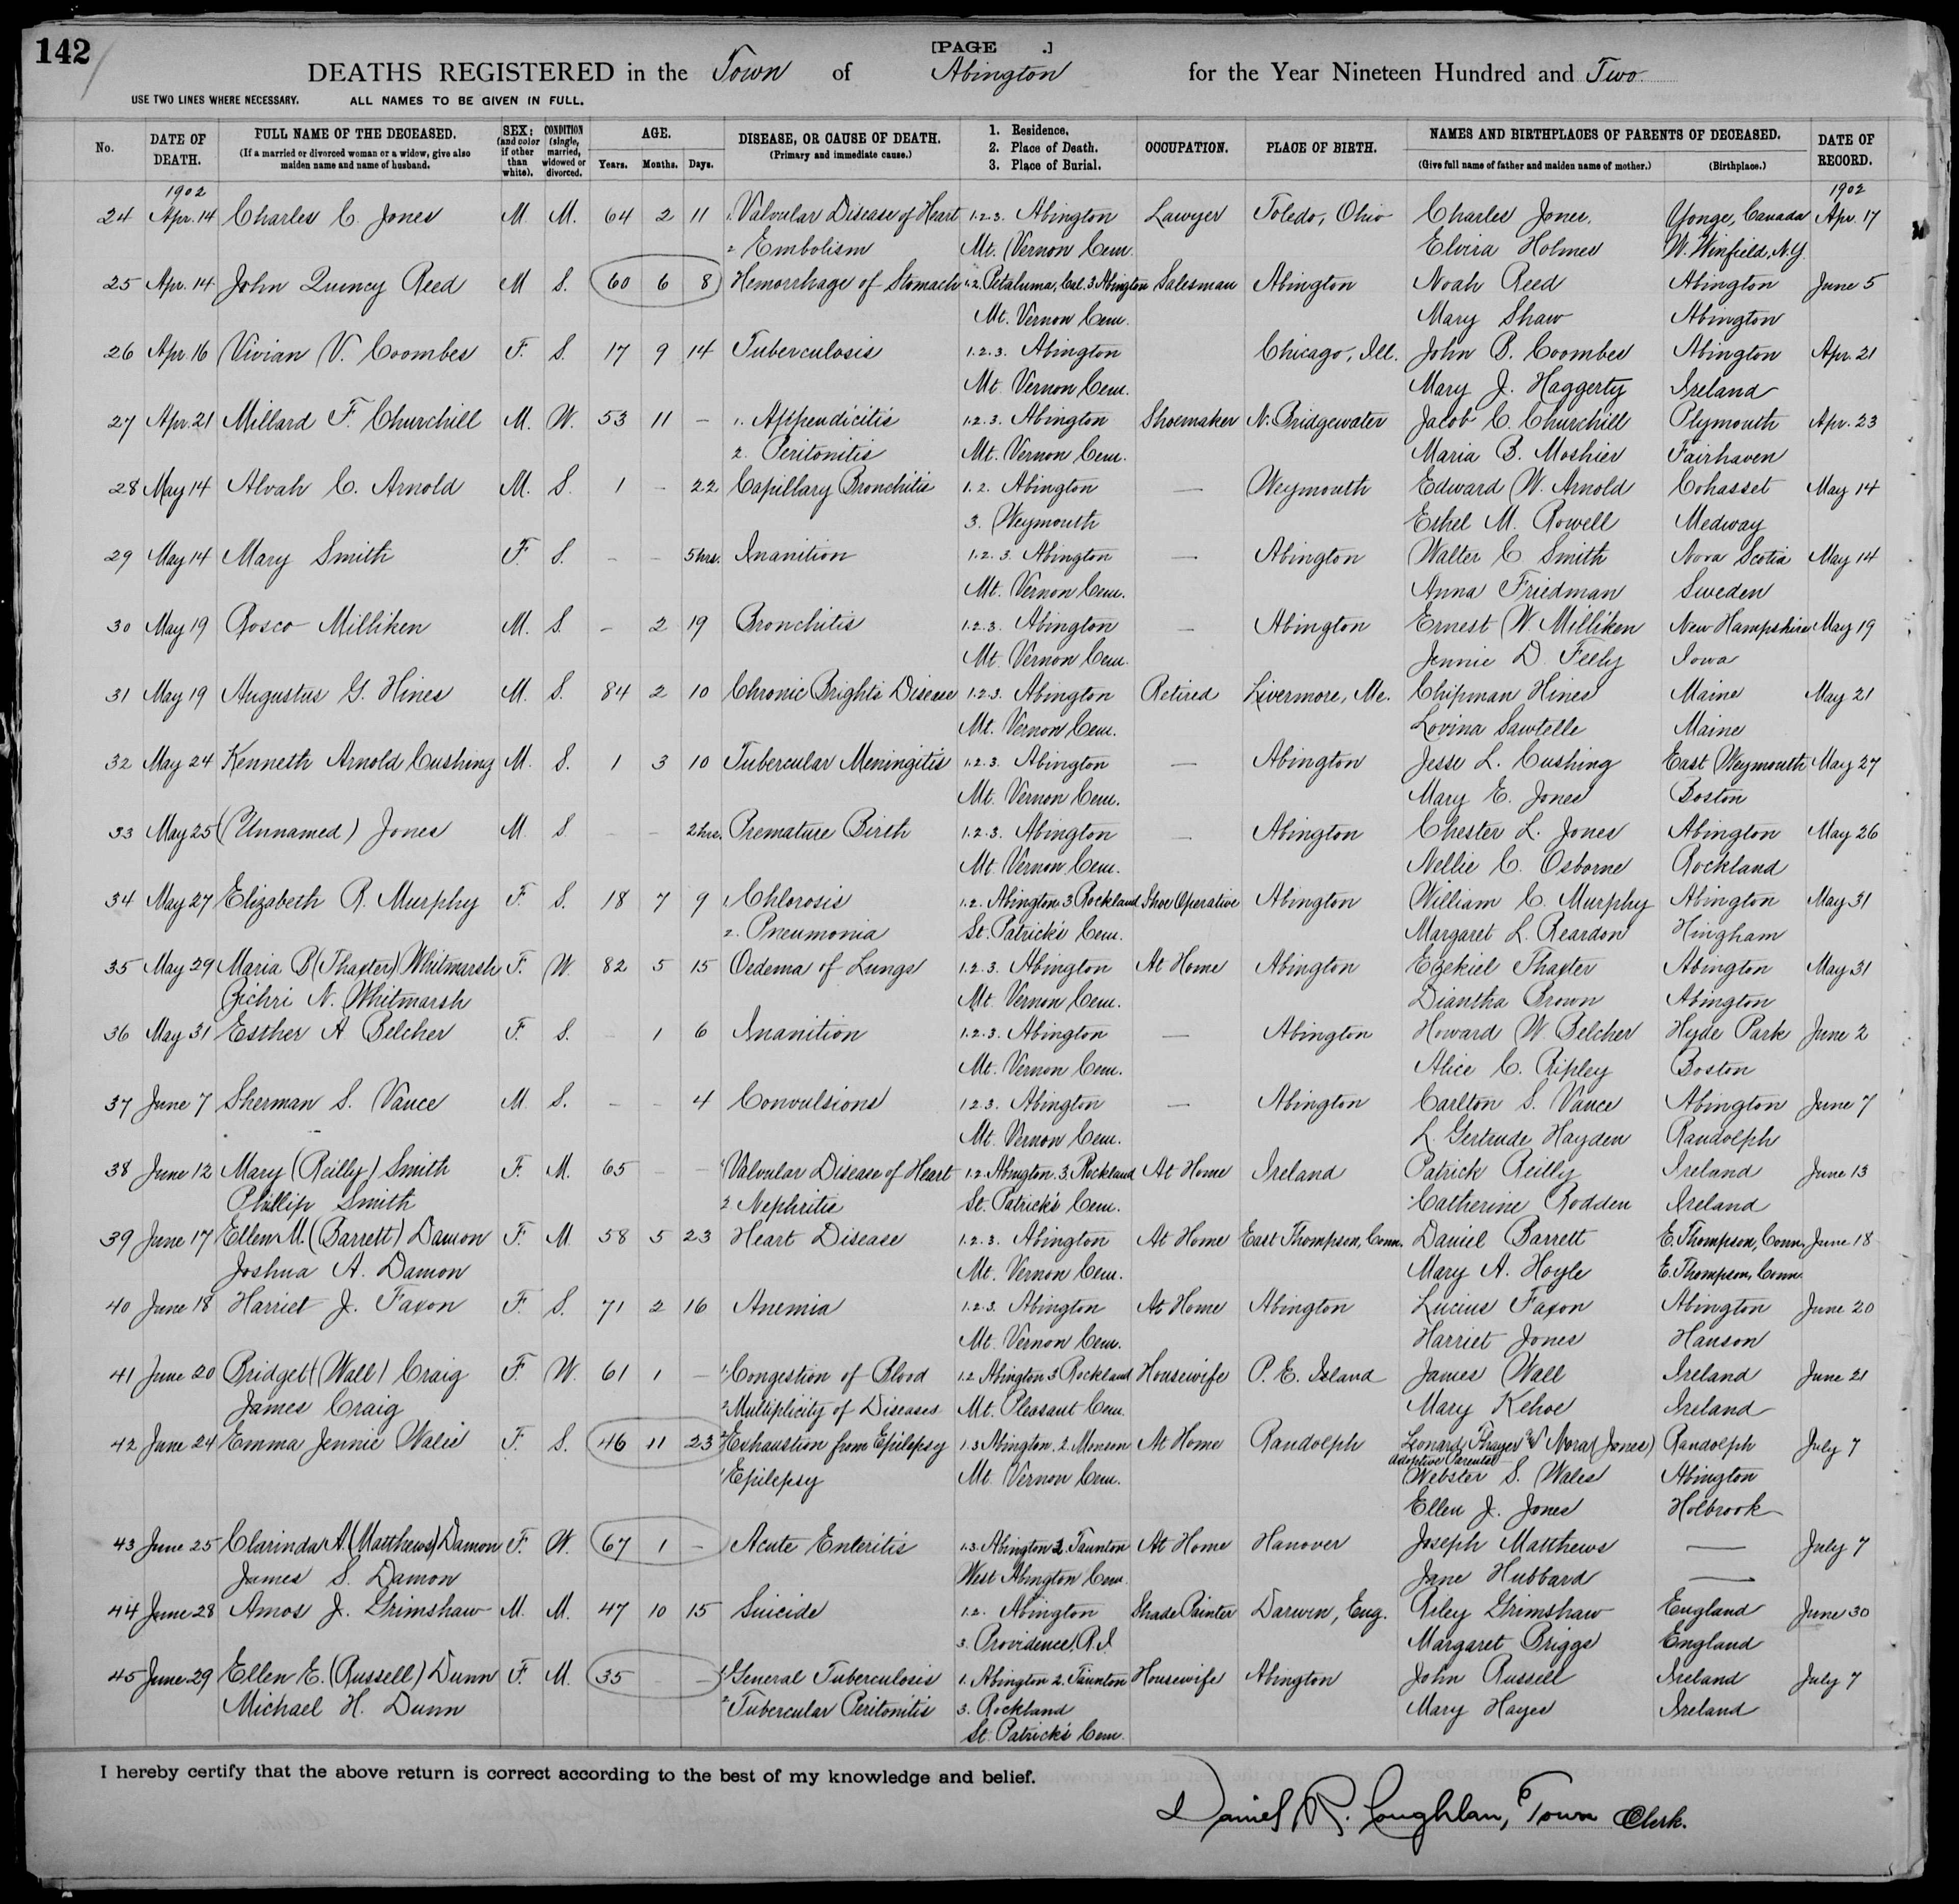 142
[PAGE .]
DEATHS REGISTERED in the Town of Abington for the Year Nineteen Hundred and Two
USE TWO LINES WHERE NECESSARY. ALL NAMES TO BE GIVEN IN FULL.
No. DATE OF DEATH. FULL NAME OF THE DECEASED. (If a married or divorced woman or a widow, give also maiden name and name of husband.) SEX: (and color if other than white). CONDITION (single, married, widowed or divorced. AGE. Years. Months. Days. DISEASE, OR CAUSE OF DEATH. (Primary and immediate cause.) 1. Residence. 2. Place of Death. 3. Place of Burial. OCCUPATION. PLACE OF BIRTH. NAMES AND BIRTHPLACES OF PARENTS OF DECEASED. (Give full name of father and maiden name of mother.) (Birthplace.) DATE OF RECORD.
1902 1902
24 Apr. 14 Charles C. Jones M. M. 64 2 11 1. Valvular Disease of Heart 1.2.3. Abington Lawyer Toledo, Ohio Charles Jones. Yonge, Canada Apr. 17
2. Embolism Mt. Vernon Cem. Elvira Holmes W. Winfield, N.Y.
25 Apr. 14 John Quincy Reed M S. 60 6 8 Hemorrhage of Stomach 1.2. Petaluma, Cal. 3. Abington Salesman Abington Noah Reed Abington June 5
Mt. Vernon Cem. Mary Shaw Abington
26 Apr. 16 Vivian V. Coombes F. S. 17 9 14 Tuberculosis 1.2.3. Abington Chicago, Ill. John B. Coombes Abington Apr. 21
Mt. Vernon Cem. Mary J. Haggerty Ireland
27 Apr. 21 Millard F. Churchill M. W. 53 11 – 1. Appendicitis 1.2.3. Abington Shoemaker N. Bridgewater Jacob C. Churchill Plymouth Apr. 23
2. Peritonitis Mt. Vernon Cem. Maria B. Moshier Fairhaven
28 May 14 Alvah C. Arnold M. S. 1 – 22 Capillary Bronchitis 1.2. Abington — Weymouth Edward W. Arnold Cohasset May 14
3. Weymouth Ethel M. Rowell Medway
29 May 14 Mary Smith F. S. – – 5 hrs. Inanition 1.2.3. Abington — Abington Walter C Smith Nova Scotia May 14
Mt. Vernon Cem. Anna Friedman Sweden
30 May 19 Rosco Milliken M. S. – 2 19 Bronchitis 1.2.3. Abington — Abington Ernest W. Milliken New Hampshire May 19
Mt. Vernon Cem. Jennie D. Feely Iowa
31 May 19 Augustus G. Hines M. S. 84 2 10 Chronic Bright's Disease 1.2.3. Abington Retired Livermore, Me. Chipman Hines Maine May 21
Mt. Vernon Cem. Lovina Sawtelle Maine
32 May 24 Kenneth Arnold Cushing M. S. 1 3 10 Tubercular Meningitis 1.2.3. Abington — Abington Jesse L. Cushing East Weymouth May 27
Mt. Vernon Cem. Mary E. Jones Boston
33 May 25 (Unnamed) Jones M. S. – – 2 hrs. Premature Birth 1.2.3. Abington — Abington Chester L. Jones Abington May 26
Mt. Vernon Cem. Nellie C. Osborne Rockland
34 May 27 Elizabeth R. Murphy F. S. 18 7 9 1. Chlorosis 1.2. Abington 3. Rockland Shoe Operative Abington William C. Murphy Abington May 31
2. Pneumonia St. Patrick's Cem. Margaret L. Reardon Hingham
35 May 29 Maria B (Thaxter) Whitmarsh F. W. 82 5 15 Oedema of Lungs 1.2.3. Abington At Home Abington Ezekiel Thaxter Abington May 31
Zichri N. Whitmarsh Mt. Vernon Cem. Diantha Brown Abington
36 May 31 Esther A Belcher F. S. – 1 6 Inanition 1.2.3. Abington — Abington Howard W. Belcher Hyde Park June 2
Mt. Vernon Cem. Alice C. Ripley Boston
37 June 7 Sherman S. Vance M. S. – – 4 Convulsions 1.2.3. Abington — Abington Carlton S. Vance Abington June 7
Mt. Vernon Cem. L. Gertrude Hayden Randolph
38 June 12 Mary (Reilly) Smith F. M. 65 – – 1. Valvular Disease of Heart 1.2. Abington. 3. Rockland At Home Ireland Patrick Reilly Ireland June 13
Phillip Smith 2. Nephritis St. Patrick's Cem. Catherine Rodden Ireland
39 June 17 Ellen M. (Barrett) Damon F. M. 58 5 23 Heart Disease 1.2.3. Abington At Home East Thompson, Conn. Daniel Barrett E. Thompson, Conn. June 18
Joshua A. Damon Mt. Vernon Cem. Mary A. Hoyle E. Thompson, Conn.
40 June 18 Harriet J. Faxon F. S. 71 2 16 Anemia 1.2.3. Abington At Home Abington Lucius Faxon Abington June 20
Mt. Vernon Cem. Harriet Jones Hanson
41 June 20 Bridget (Wall) Craig F. W. 61 1 – 1. Congestion of Blood 1.2 Abington 3 Rockland Housewife P. E. Island James Wall Ireland June 21
James Craig 2. Multiplicity of Diseases Mt. Pleasant Cem. Mary Kehoe Ireland
42 June 24 Emma Jennie Wales F. S. 46 11 23 2. Exhaustion from Epilepsy 1.3 Abington, 2. Monson At Home Randolph Leonard Thayer & Nora (Jones) Randolph July 7
1. Epilepsy Mt. Vernon Cem. Adoptive Parents Webster S. Wales Abington
Ellen J. Jones Holbrook
43 June 25 Clarinda A. (Matthews) Damon F. W. 67 1 – Acute Enteritis 1.3. Abington 2. Taunton At Home Hanover Joseph Matthews — July 7
James S. Damon West Abington Cem. Jane Hubbard —
44 June 28 Amos J. Grimshaw M. M. 47 10 15 Suicide 1.2. Abington Shade Painter Darwen, Eng. Riley Grimshaw England June 30
3. Providence, R.I Margaret Briggs England
45 June 29 Ellen E. (Russell) Dunn F. M. 35 – – 1. General Tuberculosis 1. Abington 2. Taunton Housewife Abington John Russell Ireland July 7
Michael H. Dunn 2. Tubercular Peritonitis 3. Rockland Mary Hayes Ireland
St. Patrick's Cem.
I hereby certify that the above return is correct according to the best of my knowledge and belief.
Daniel R. Coughlan, Town Clerk.